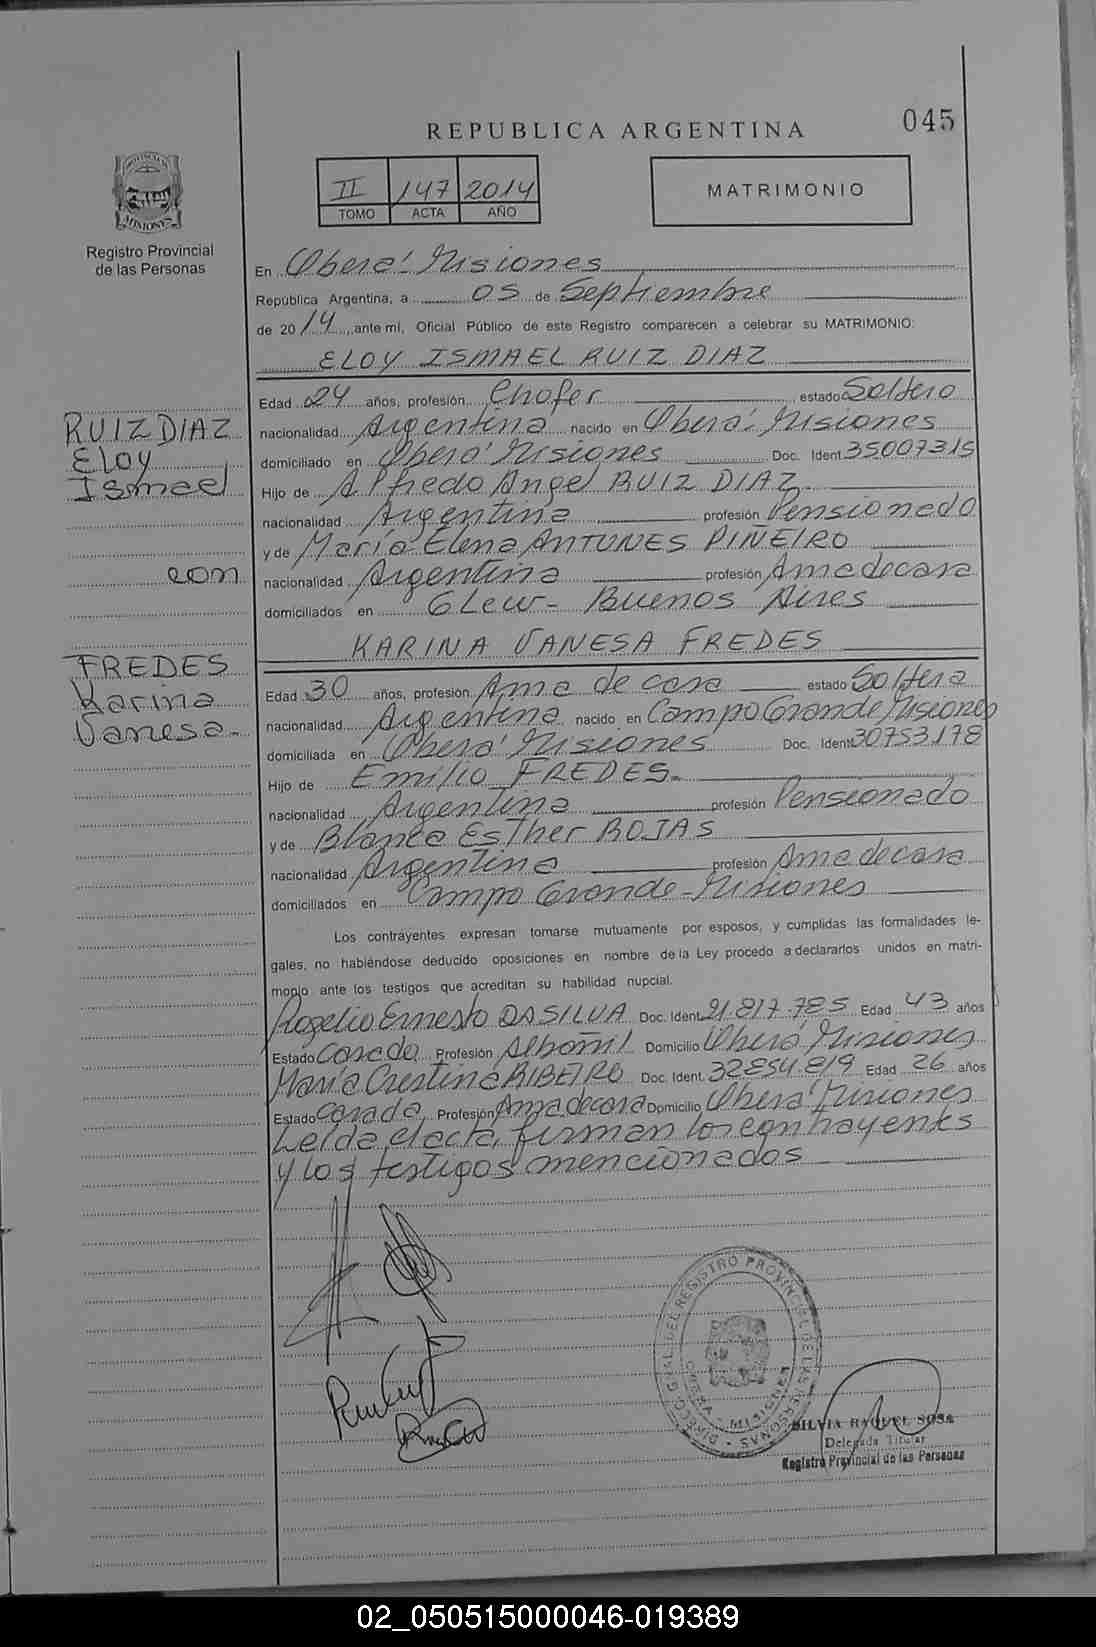 REPUBLICA ARGENTINA
045
PROVINCIA DE
MISIONES
Registro Provincial
de las Personas
II 147 2014
TOMO ACTA AÑO
MATRIMONIO
En Oberá Misiones
República Argentina, a 05 de Septiembre
de 2014, ante mí, Oficial Público de este Registro comparecen a celebrar su MATRIMONIO:
ELOY ISMAEL RUIZ DIAZ
Edad 24 años, profesión Chofer estado Soltero
nacionalidad Argentina nacido en Oberá Misiones
domiciliado en Oberá Misiones Doc. Ident. 35007315
Hijo de Alfredo Angel RUIZ DIAZ
nacionalidad Argentina profesión Pensionado
y de María Elena ANTUNES PIÑEIRO
nacionalidad Argentina profesión Ama de casa
domiciliados en Glew - Buenos Aires
KARINA VANESA FREDES
Edad 30 años, profesión Ama de casa estado Soltera
nacionalidad Argentina nacido en Campo Grande Misiones
domiciliada en Oberá Misiones Doc. Ident. 30753178
Hijo de Emilio FREDES.
nacionalidad Argentina profesión Pensionado
y de Blanca Esther ROJAS
nacionalidad Argentina profesión Ama de casa
domiciliados en Campo Grande - Misiones
RUIZ DIAZ
Eloy
Ismael
con
FREDES
Karina
Vanesa.
Los contrayentes expresan tomarse mutuamente por esposos, y cumplidas las formalidades le-
gales, no habiéndose deducido oposiciones en nombre de la Ley procedo a declararlos unidos en matri-
monio ante los testigos que acreditan su habilidad nupcial.
Rogelio Ernesto DA SILVA Doc. Ident. 21.817.785 Edad 43 años
Estado Casado Profesión Albañil Domicilio Oberá Misiones
María Cristina RIBEIRO Doc. Ident. 32854.819 Edad 26 años
Estado Casada Profesión Ama de casa Domicilio Oberá Misiones
Leída el acta, firman los contrayentes
y los testigos mencionados
DIRECC. GRAL. DEL REGISTRO PROVINCIAL DE LAS PERSONAS
OBERA - MISIONES
SILVIA RAQUEL SOSA
Delegada Titular
Registro Provincial de las Personas
02_050515000046-019389